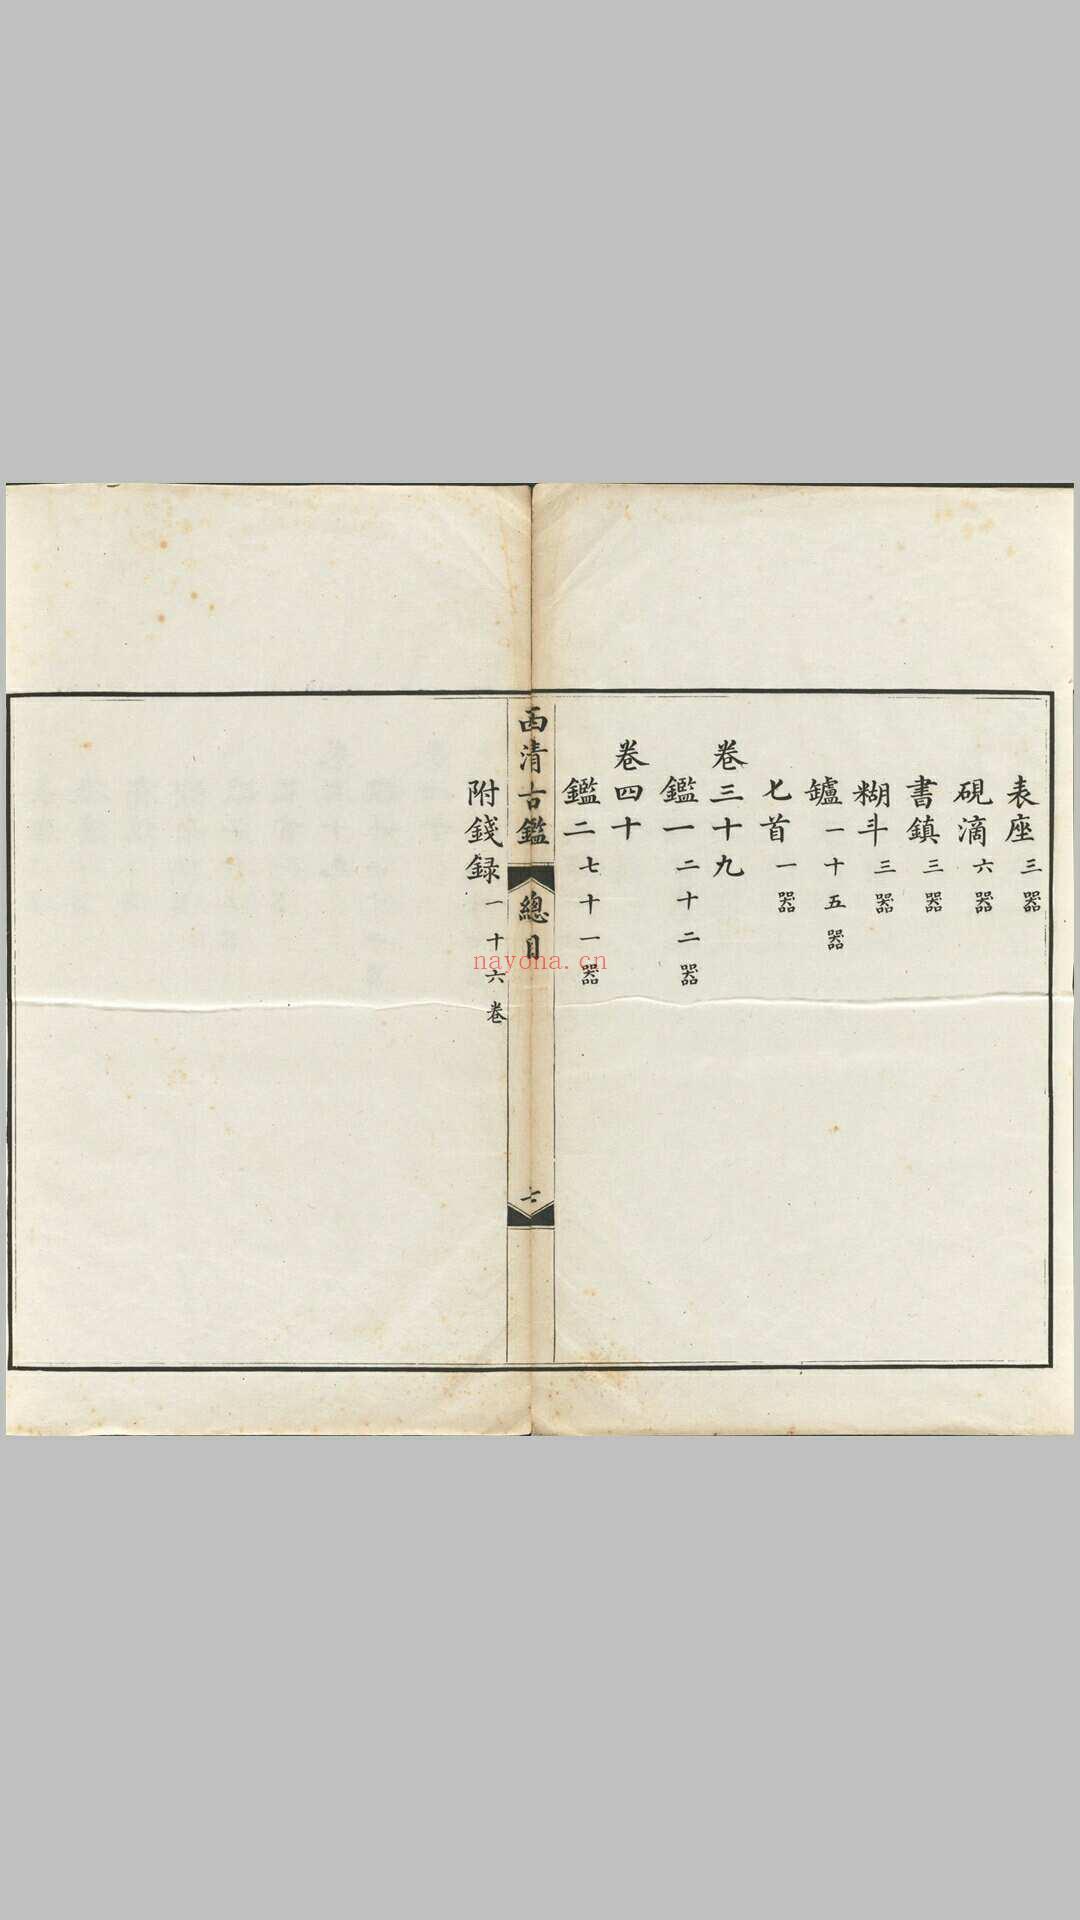 表座三器
硯滴六器
書鎮三器
糊斗三器
鑪一十五器
匕首一器
卷三十九
鑑一二十二器
卷四十
鑑二七十一器
西清古鑑 總目 七
附錢録一十六卷
nayona.cn